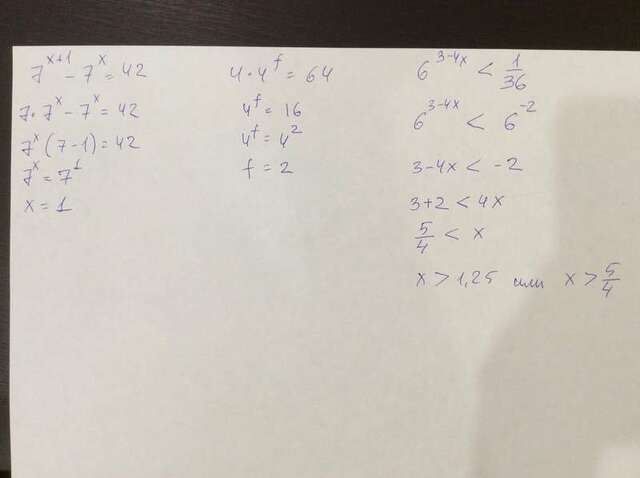 7^{x+1} - 7^x = 42
7 · 7^x - 7^x = 42
7^x (7 - 1) = 42
7^x = 7^1
x = 1
4 · 4^f = 64
4^f = 16
4^f = 4^2
f = 2
6^{3-4x} < 1/36
6^{3-4x} < 6^{-2}
3 - 4x < -2
3 + 2 < 4x
5/4 < x
x > 1,25 или x > 5/4